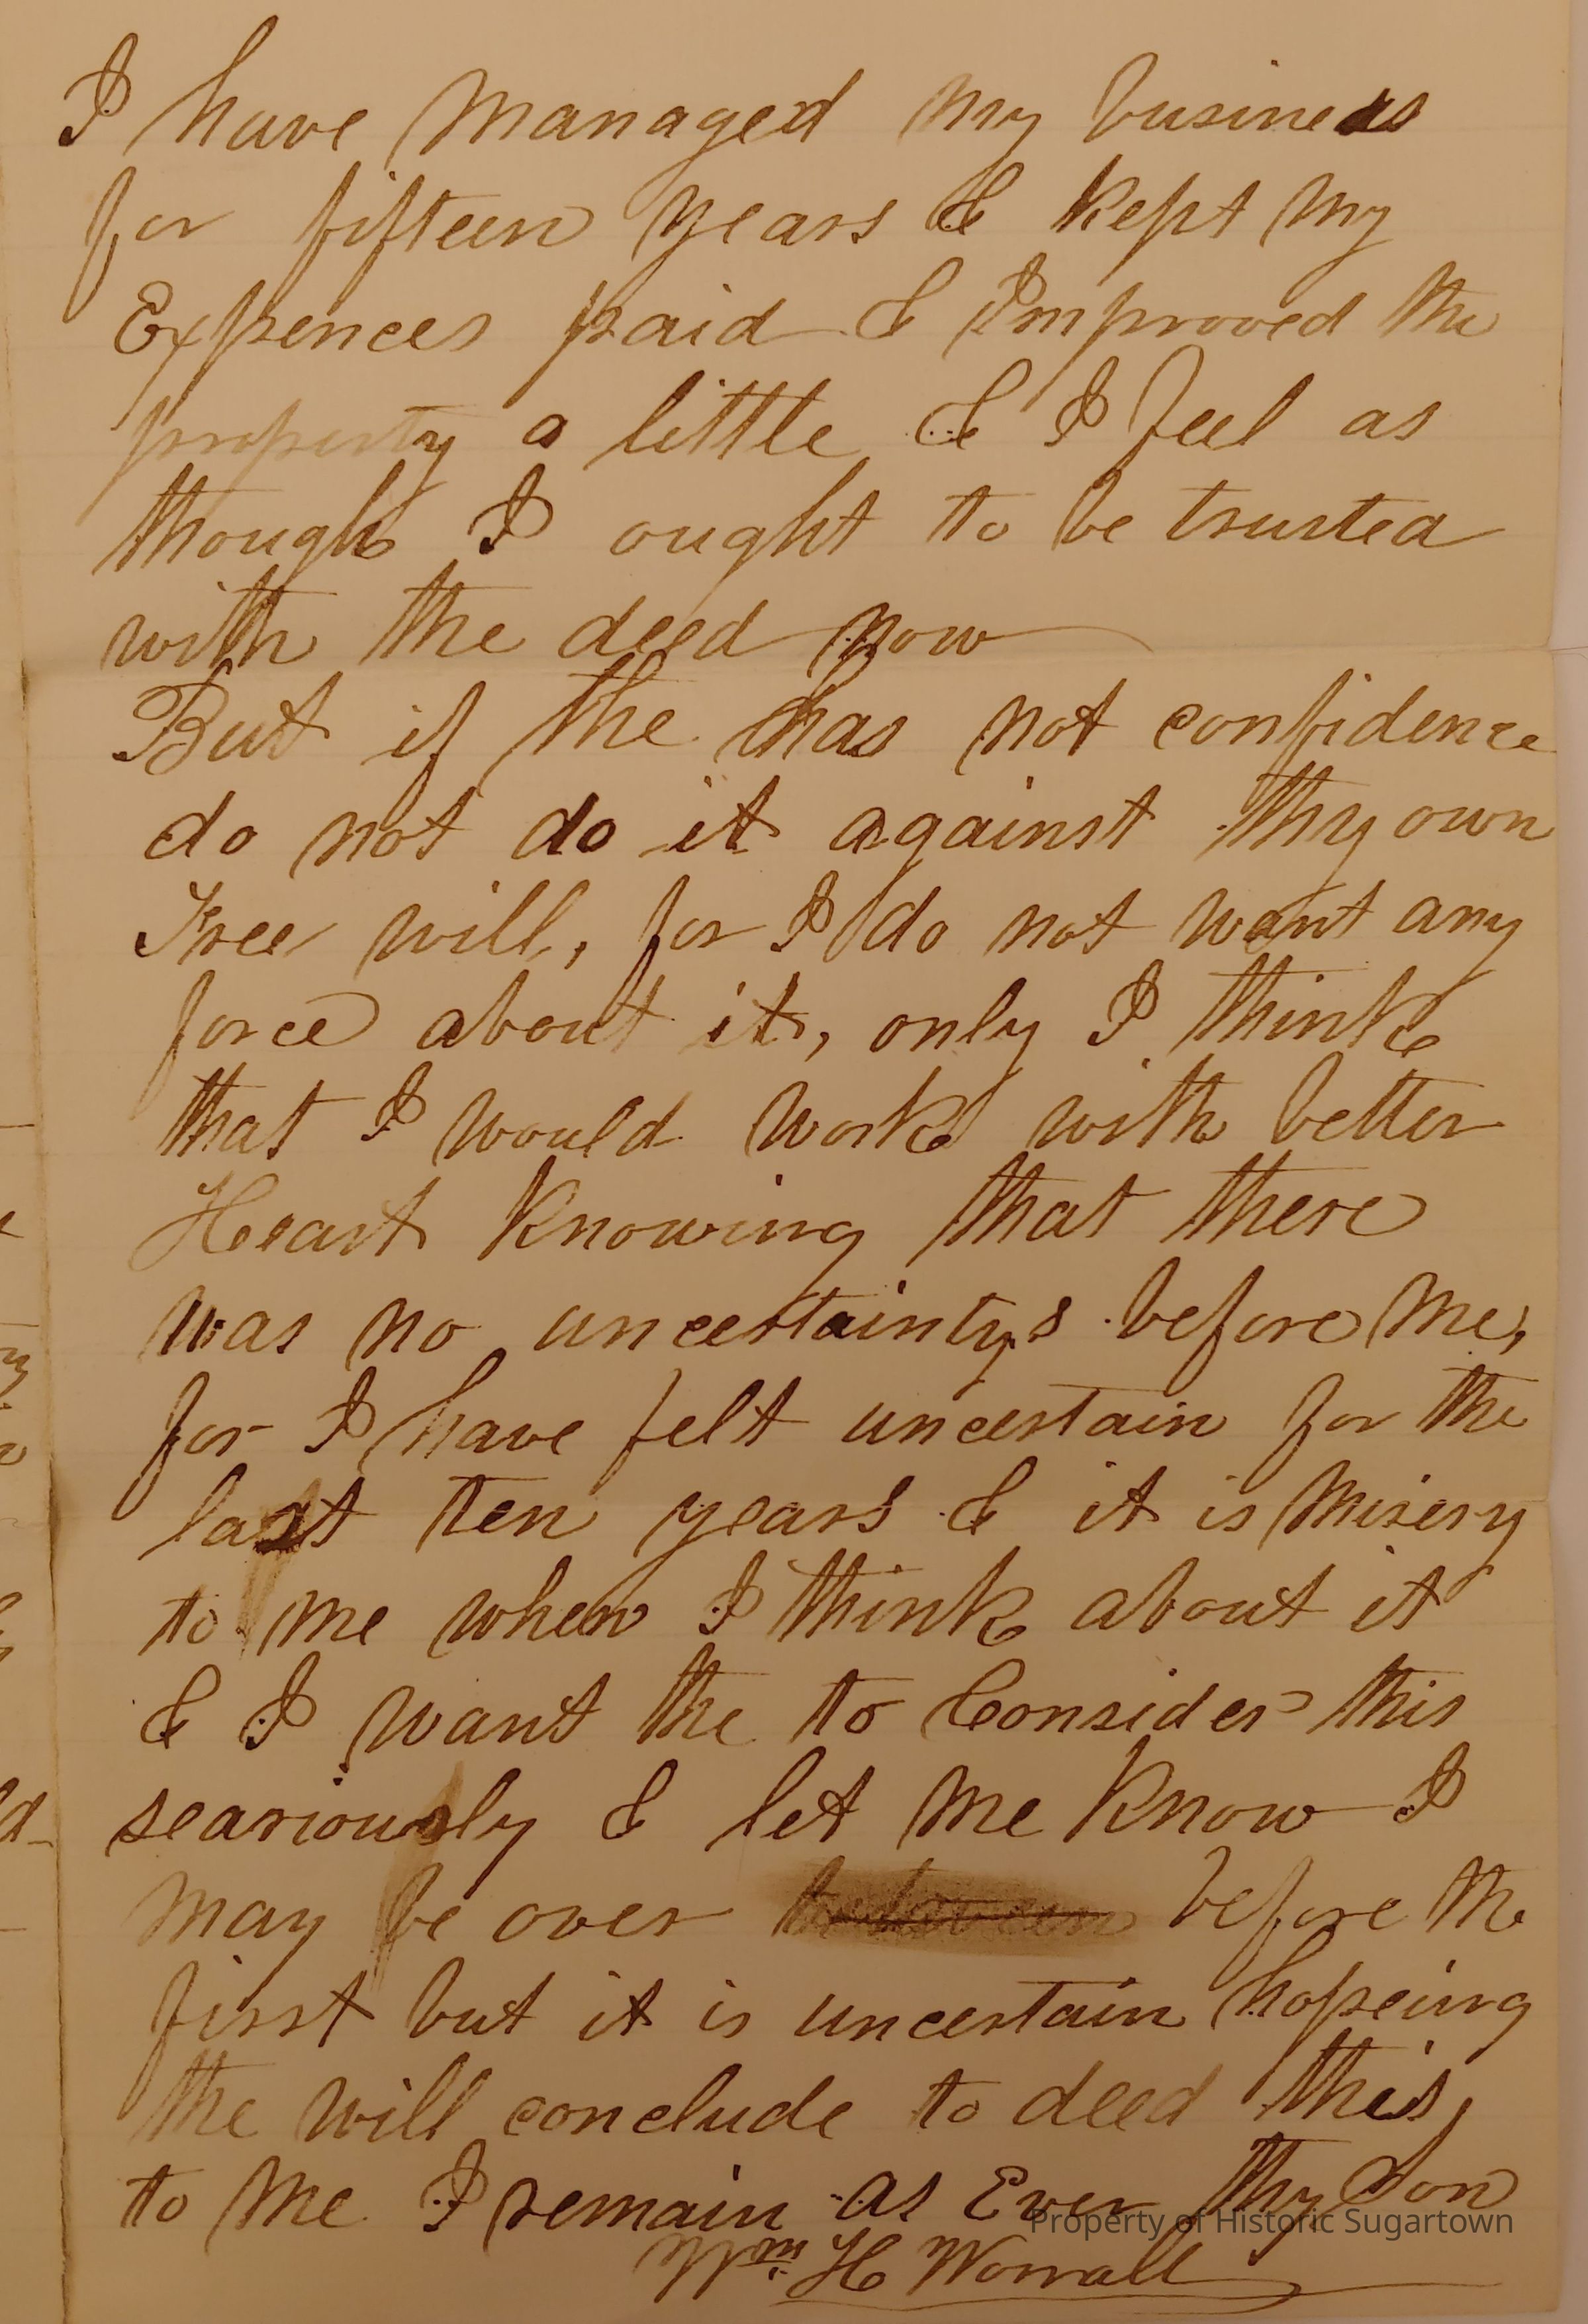 I have managed my business
for fifteen years & kept my
Expences paid & Improved the
property a little & I feel as
though I ought to be trusted
with the deed now
But if the has not confidence
do not do it against thy own
Free will, for I do not want any
force about it, only I think
that I would work with better
Heart knowing that there
was no uncertaintys before me,
for I have felt uncertain for the
last ten years & it is misery
to me when I think about it
& I want the to Consider this
seariously & let me know I
may be over before the
first but it is uncertain hopeing
the will conclude to deed this,
to me I remain as Ever thy Son
Wm H Worrall
Property of Historic Sugartown